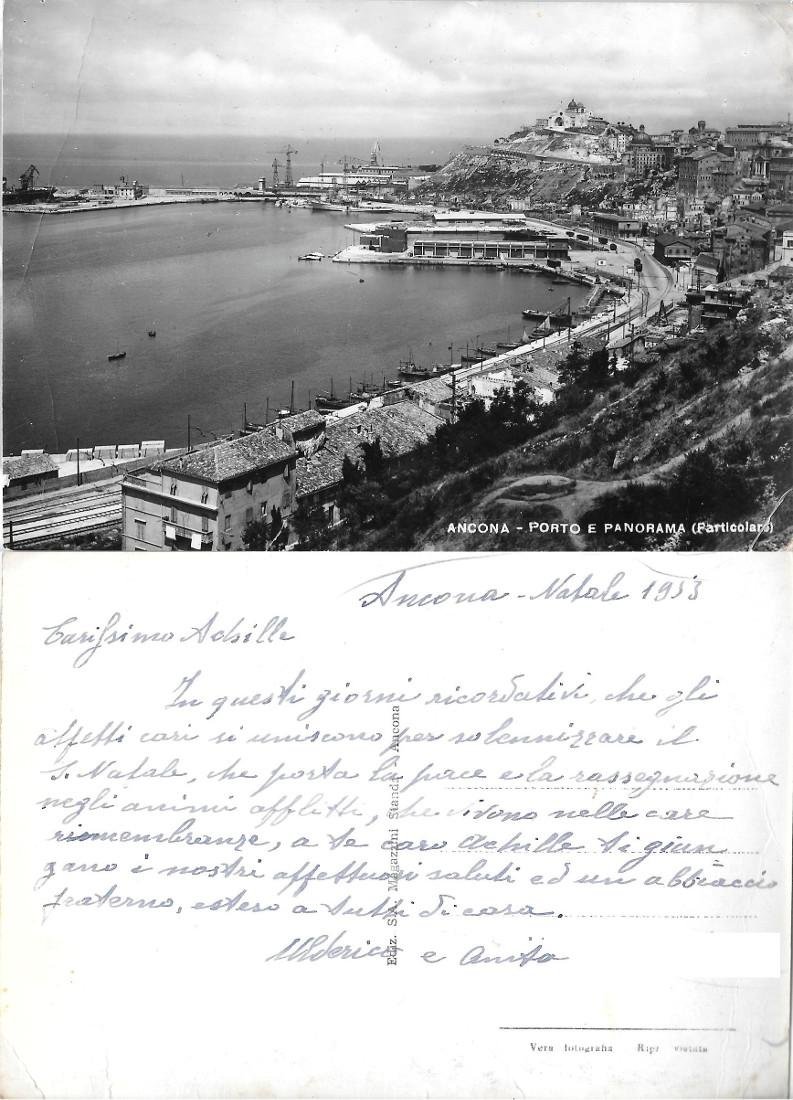 ANCONA - PORTO E PANORAMA (Particolare)
Ancona - Natale 1953
Carissimo Achille
In questi giorni ricordativi, che gli
affetti cari si uniscono per solennizzare il
S. Natale, che porta la pace e la rassegnazione
negli animi afflitti, che vivono nelle care
rimembranze, a te caro Achille ti giun
gano i nostri affettuosi saluti ed un abbraccio
fraterno, estero a tutti di casa.
e Anita
Ediz. Magazzini Standa - Ancona
Vera fotografia Ripr. vietata